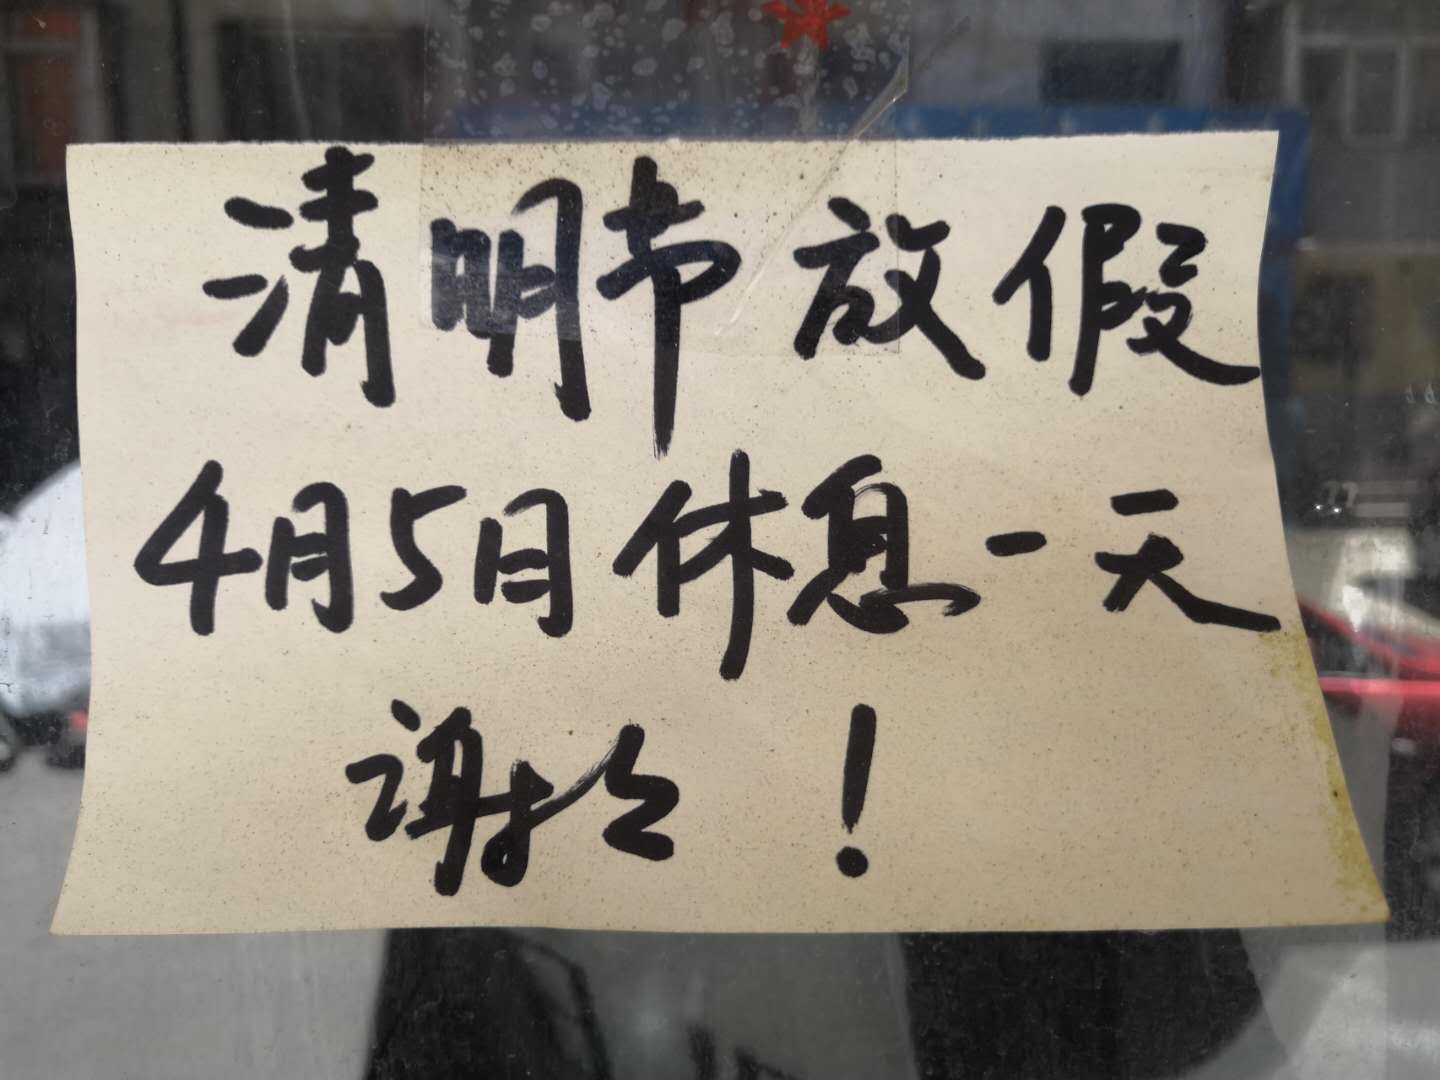 清明节放假
4月5日休息一天
谢谢！